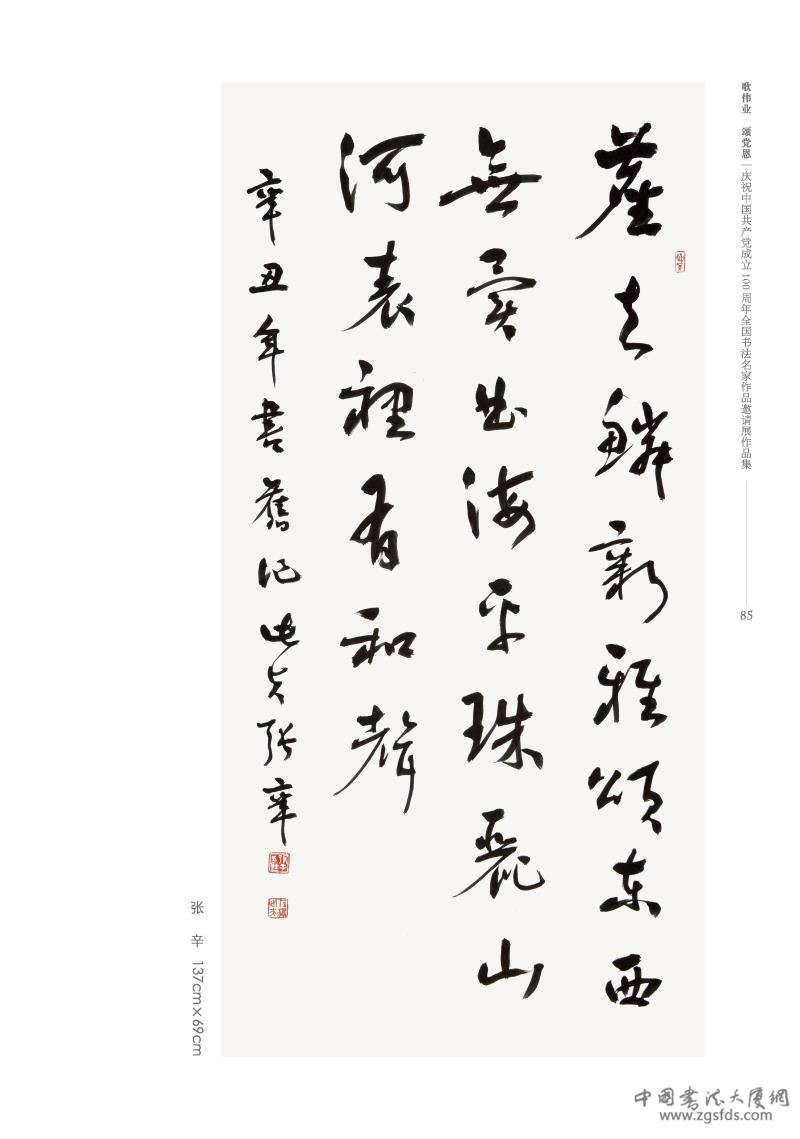 歌伟业 颂党恩 | 庆祝中国共产党成立100周年全国书法名家作品邀请展作品集
85
去鱗新雅頌東西
無異曲海平珠麗山
河表裡有和聲
辛丑年書舊張辛
张 辛 137cm×69cm
中国书法大厦網
www.zgsfds.com